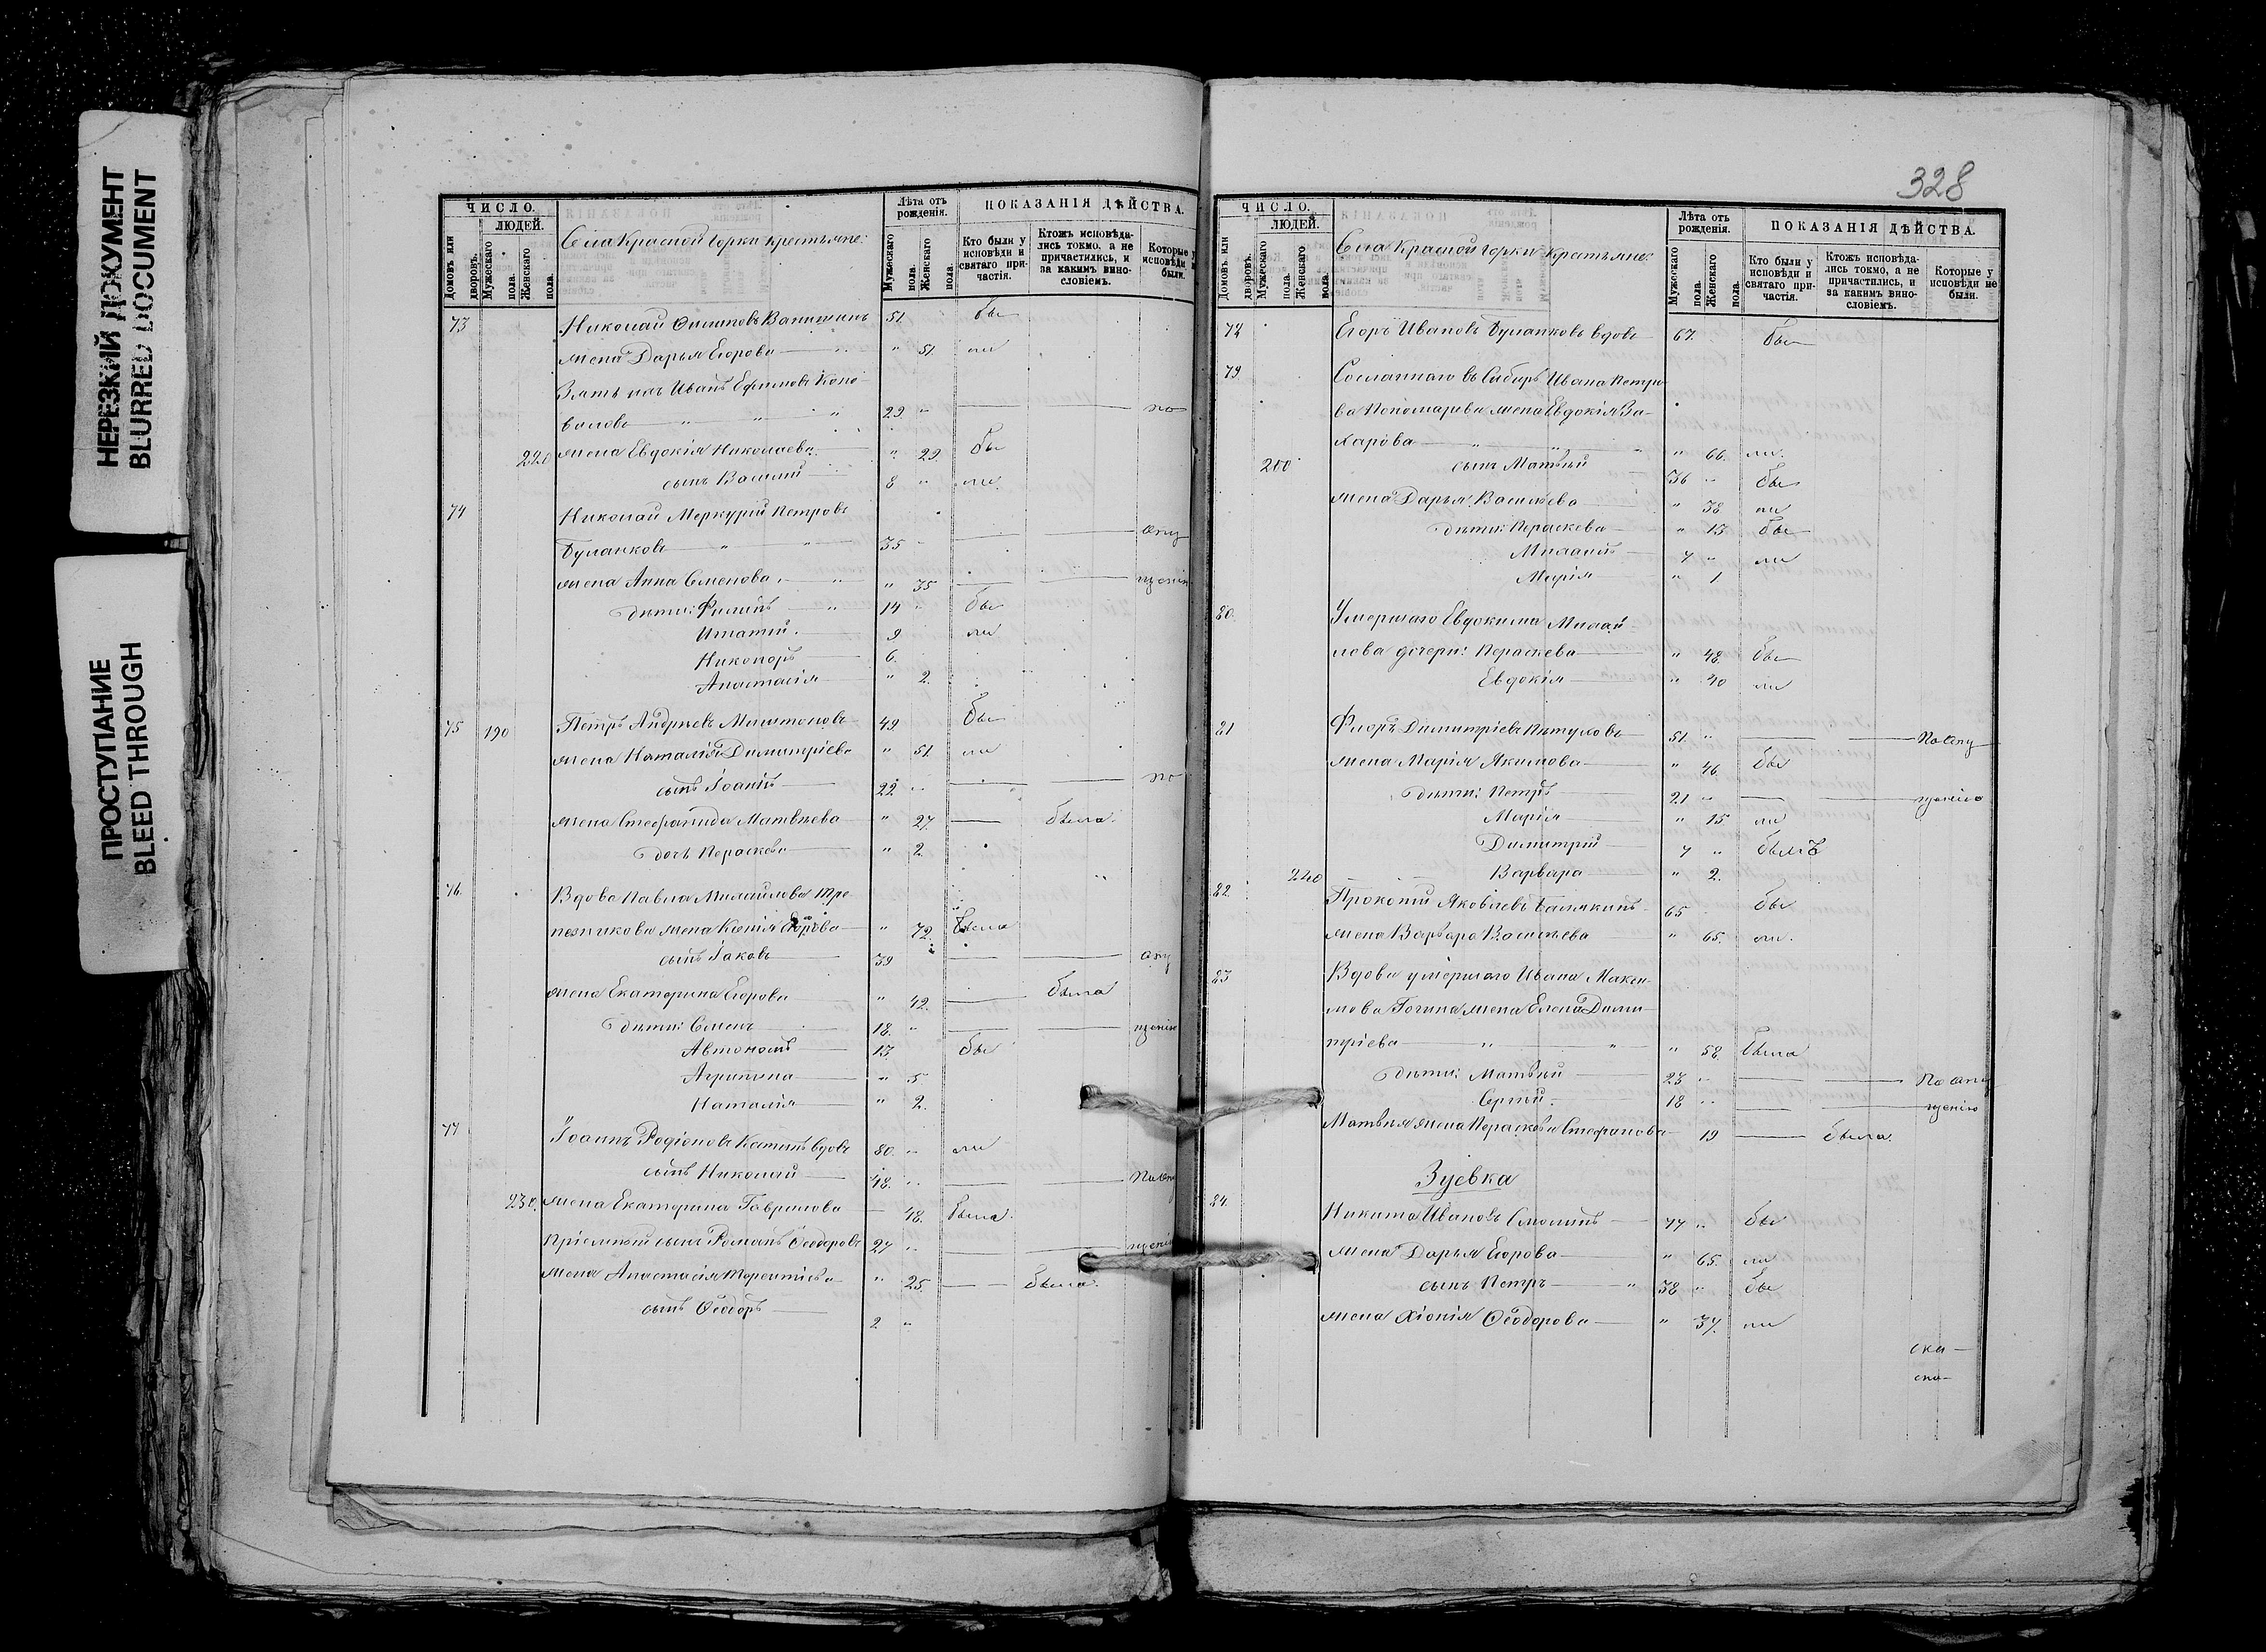 НЕРЕЗКИЙ ДОКУМЕНТ
BLURRED DOCUMENT
ПРОСТУПАНИЕ
BLEED THROUGH
ЧИСЛО.
ЛЮДЕЙ.
Домовъ или дворовъ.
Мужескаго пола.
Женскаго пола.
Села Красной Горки крестьяне:
Лѣта отъ рожденія.
Мужескаго пола.
Женскаго пола.
ПОКАЗАНІЯ ДѢЙСТВА.
Кто были у исповѣди и святаго причастія.
Ктожъ исповѣдались токмо, а не причастились, и за какимъ винословіемъ.
Которые у исповѣди
были.
73 Николай 51. бы
жена Дарья Егорова " 51. ли
Зять ихъ Иванъ Ефимовъ Коно-
валовъ " " 29 " по
220 жена Евдокія Николаева " 29. бы
сынъ Василій 8 " ли
74 Николай Меркурій Петровъ
Буланковъ " " 35 " опу
жена Анна Семенова " " 35 щенію
дѣти: Филипъ " 14 " бы
Игнатій 9 ли
Никоноръ 6.
Анастасія " 2.
75 190 Петръ Андреевъ 49. бы
жена Наталія Димитріева " 51. ли
сынъ Іоаннъ 22. " по
жена Степанида Матвѣева " 27. была.
дочь Параскева " 2.
76. Вдова Павла Михайлова Тре-
пезникова жена Ксенія Егорова " 72. была
сынъ Іаковъ 39 опу
жена Екатерина Егорова " 42. была
дѣти: Семенъ 18. " щенію
Автономъ 13. бы
Агрипина " 5
Наталія " 2.
77 Іоаннъ Родіоновъ вдовъ 80. " ли
сынъ Николай 48. " По опу
230. жена Екатерина Гаврилова 48. была.
Пріемный сынъ Романъ Ѳеодоровъ 27 " щенію
жена Анастасія Терентіева " 25. была.
сынъ Ѳеодоръ 2 "
328
ЧИСЛО.
ЛЮДЕЙ.
Домовъ или дворовъ.
Мужескаго пола.
Женскаго пола.
Села Красной Горки Крестьяне:
Лѣта отъ рожденія.
Мужескаго пола.
Женскаго пола.
ПОКАЗАНІЯ ДѢЙСТВА.
Кто были у исповѣди и святаго причастія.
Ктожъ исповѣдались токмо, а не причастились, и за какимъ винословіемъ.
Которые у исповѣди не были.
78 Егоръ Ивановъ Буланковъ вдовъ 67. бы
79. Сосланнаго въ Сибирь Ивана Петро-
ва Пономарева жена Евдокія За-
харова " " " 66. ли.
200 сынъ Матвѣй 36 " бы
жена Дарья Васильева " 38 ли
дѣти: Параскева " 13 бы
Михаилъ 7 " ли
Марія " 1
80. Умершаго Евдокима Михай-
лова дочери: Параскева " 48. бы
Евдокія " 40 ли
81 Флоръ Димитріевъ Пѣтуховъ 51. " По опу
жена Марія Якимова " 46. бы
дѣти: Петръ 21 " щенію
Марія " 15. ли
Димитрій 7 " былъ
240 Варвара " 2.
82. Прокопій Яковлевъ 65 бы
жена Варвара Васильева " 65. ли.
83 Вдова умершаго Ивана Макси-
мова жена Елена Дими-
тріева " " " 58. была
дѣти: Матвѣй 23 " По опу
Сергѣй 18 " щенію
Матвѣя жена Параскева Стефанова 19 была.
Зуевка
84. Никита Ивановъ 77 " бы
жена Дарья Егорова " 65. ли
сынъ Петръ " 38 " бы
жена Хіонія Ѳеодорова " 37. ли